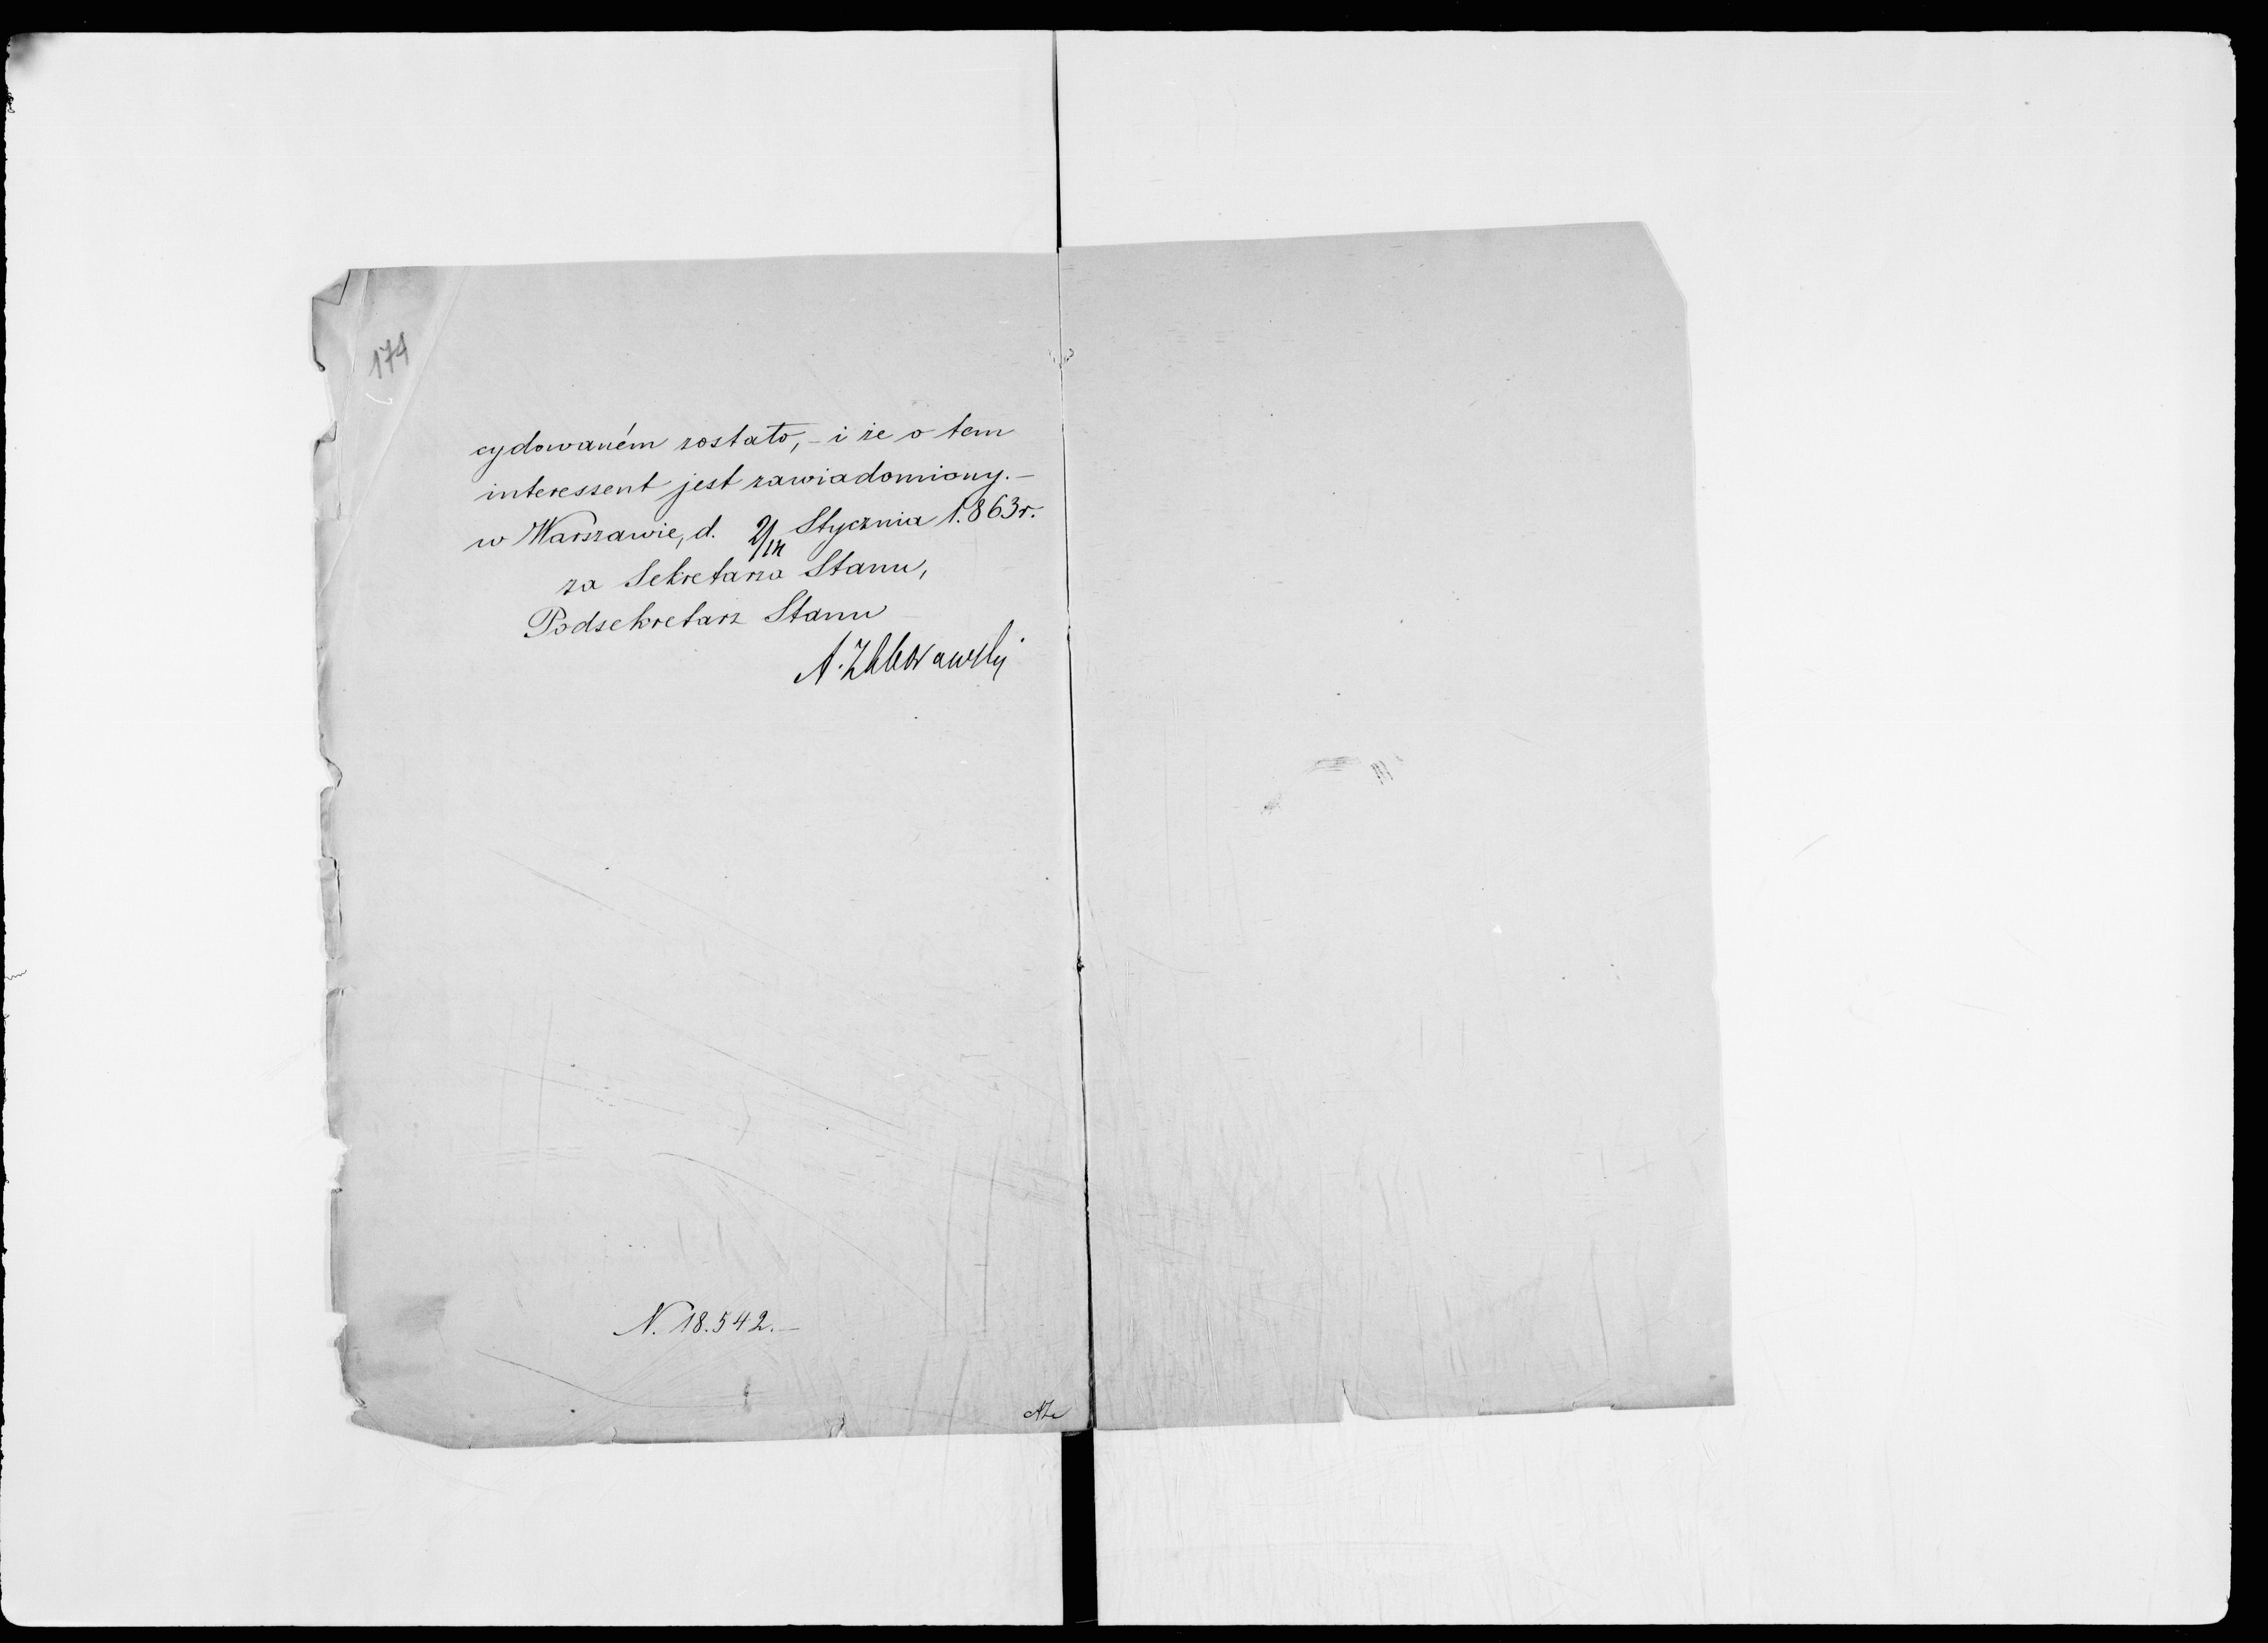 174
cydowaném zostało, - i że o tem
interessent jest zawiadomiony. -
w Warszawie, d. 2/14 Stycznia 1.863 r.
za Sekretarza Stanu,
Podsekretarz Stanu
A. Zaborowski
N. 18.542. -